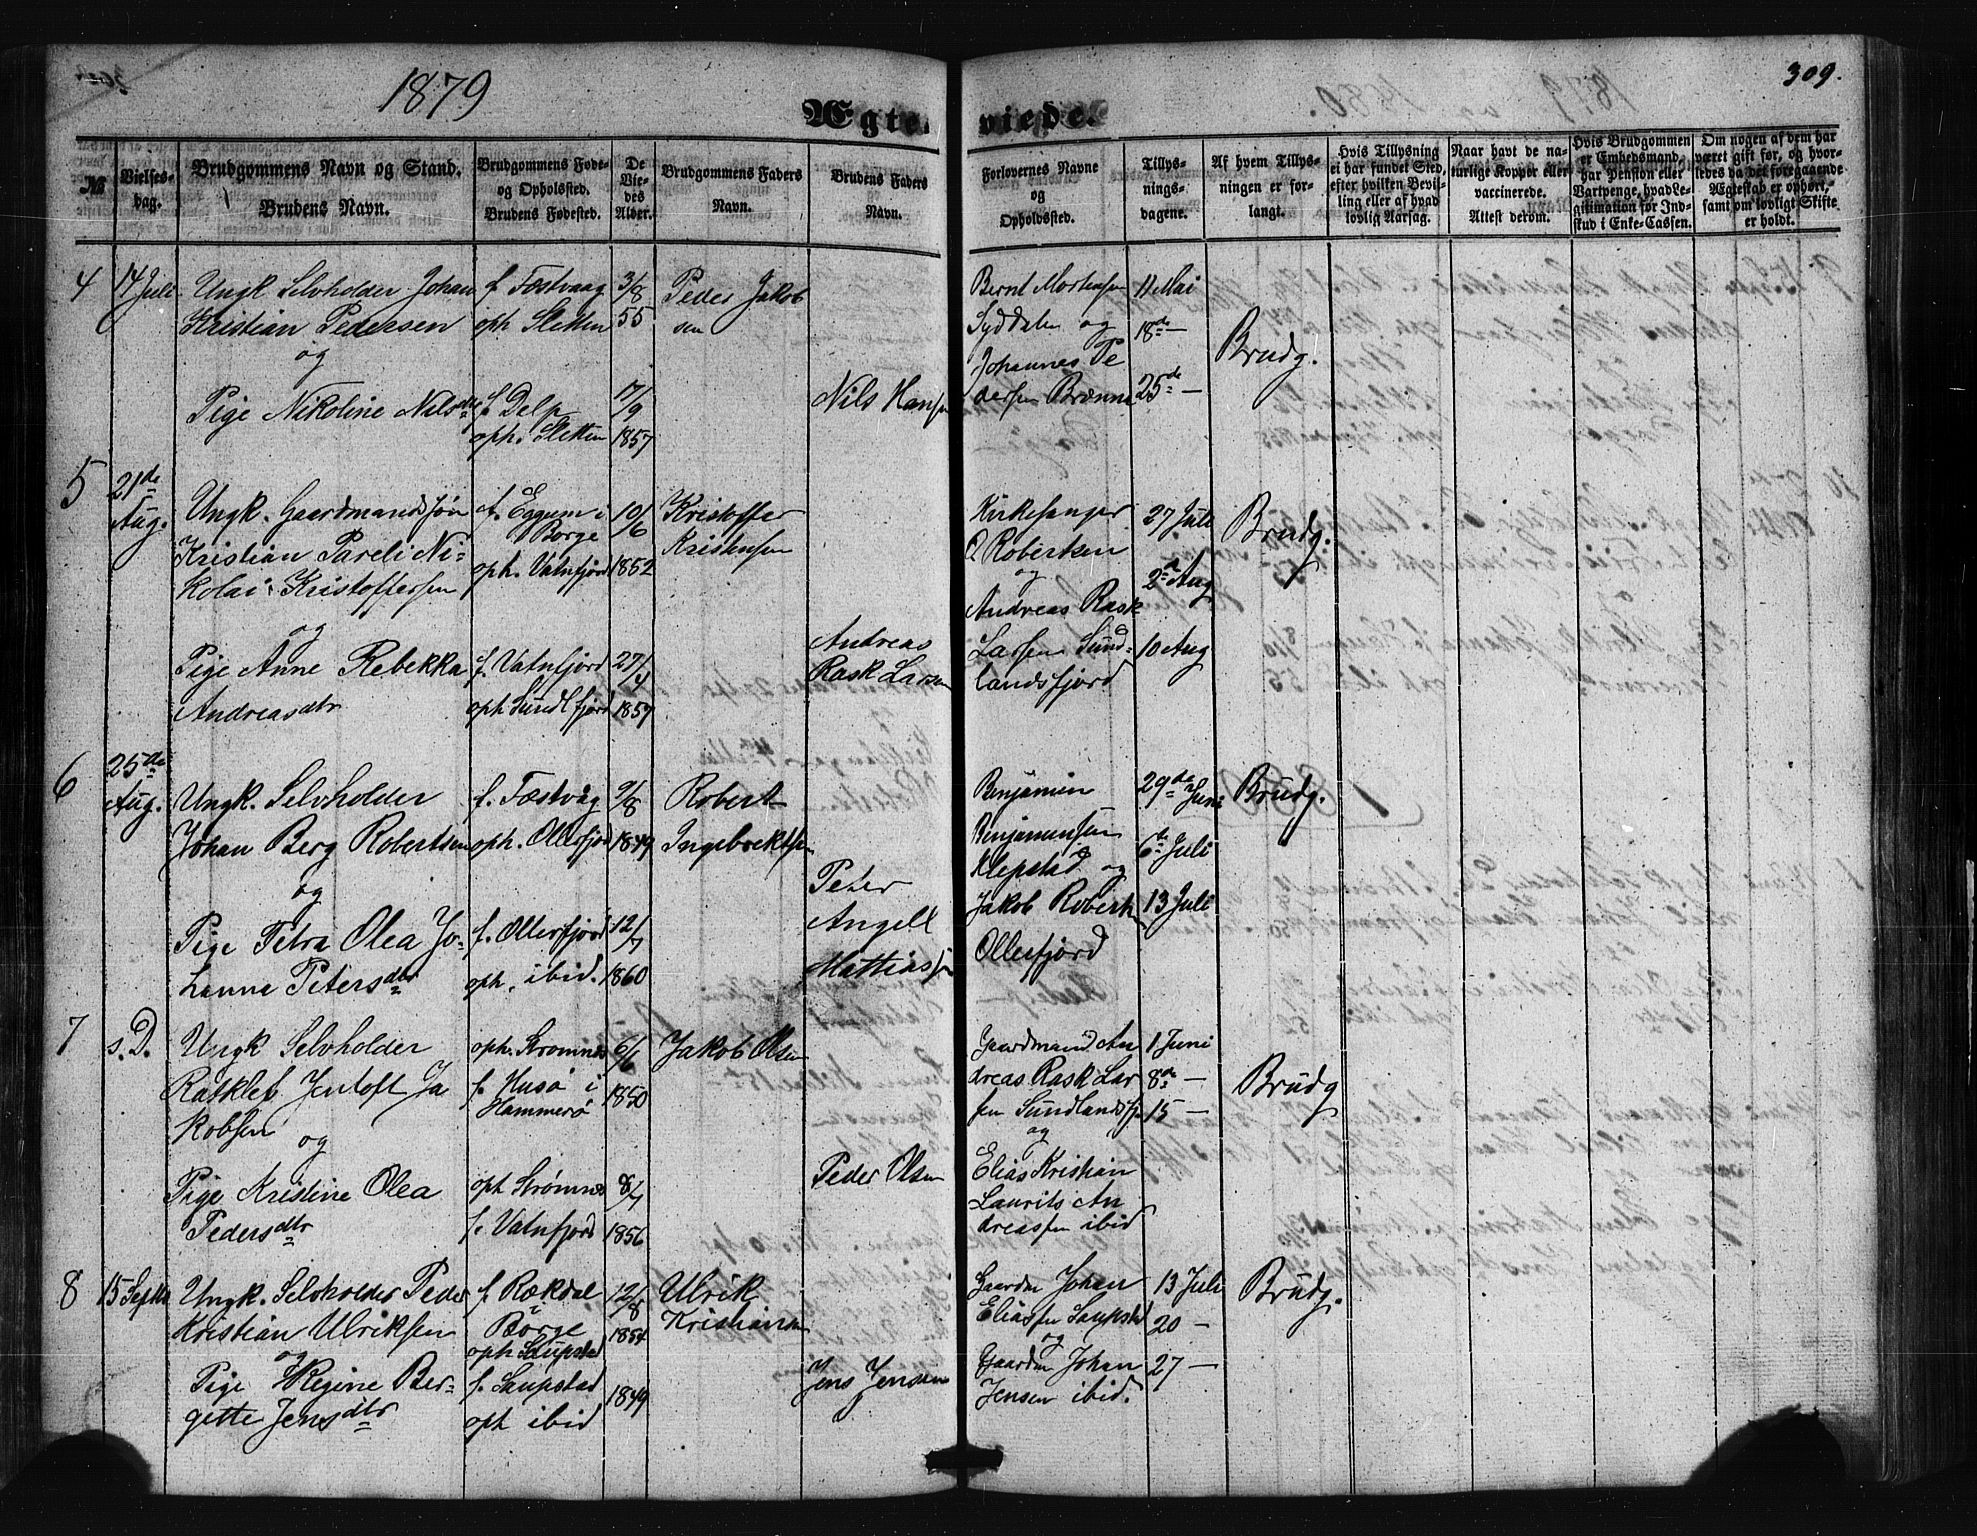 1879
309.
Ægte-viede.
№
Vielses-dag.
Brudgommens Navn og Stand.
Brudens Navn.
Brudgommens Føde- og Opholdssted.
Brudens Fødested.
De Viedes Alder.
Brudgommens Faders Navn.
Brudens Faders Navn.
Forlovernes Navne og Opholdssted.
Tillysningsdagene.
Af hvem Tillysningen er forlangt.
Hvis Tillysning ei har fundet Sted, efter hvilken Bevilling eller af hvad lovlig Aarsag.
Naar havt de naturlige Kopper eller vaccinerede.
Attest derom.
Hvis Brudgommen er Embedsmand, har Pension eller Vartpenge, hvad Legitimation for Indskud i Enke-Cassen.
Om nogen af dem har været gift før, og hvorledes da det foregaaende Ægteskab er ophørt, samt om lovligt Skifte er holdt.
4 14 Juli Ungk Selvholder Johan f. Fæstvaag 3/8 Peder Jakob Bernt Mortensen 11 Mai
Kristian Pedersen oph Sletten 55 sen Syddalen og 18de —
og Johannes Pe Brudg.
Pige Nikoline Nilsdtr f. Delp 17/9 Nils Hansen dersen Brænna 25de —
oph. Sletten 1857
5 21de Aug. Ungk. Gaardmandssøn f. Eggum i 19/6 Kristoffer Kirkesanger 27 Juli Brudg.
Kristian Pareli Ni- Borge 1852 Kristensen O Robertsen
kolai Kristoffersen oph. Vatnfjord og 2de Aug
og Andreas Andreas Rask
Pige Anne Rebekka f. Vatnfjord 27/4 Rask Larsen Larsen Sund- 10 Aug
Andreasdtr oph Sundlfjord 1857 landsfjord
6 25de Aug. Ungk. Selvholder f. Fæstvåg 9/8 Robert Benjamin 29de Juni Brudg.
Johan Berg Robertsen oph. Ollersfjord 1849 Ingebrektsen Benjaminsen 6te Juli
og Peter Klepstad og
Pige Petra Olea Jo- f. Ollersfjord 12/7 Angell Jakob Roberts 13 Juli
hanna Petersdtr oph. ibid. 1860 Mattiassen Ollersfjord
7 s. D. Ungk Selvholder oph. Strømnes 6/6 Jakob Olsen Gaardmand An 1 Juni
Ratklef Jentoft Ja f. Husø i 1850 dreas Rask Lar 8de — Brudg
kobsen Hammerø sen Sundlandsfj 15 —
og og
Pige Kristine Olea oph Strømnes 8/7 Peder Olsen Elias Kristian
Pedersdtr f. Vatnfjord 1856 Laurits An
dreassen ibid
8 15 Septbr Ungk. Selvholder Peder f. Rækdal 12/8 Ulrik Gaardm Johan 13 Juli Brudg.
Kristian Ulriksen Borge 1854 Kristiansen Eliassen Saupstad 20 —
og oph Saupstad og
Pige Regine Ber- f. Saupstad 1849 Jens Jensen Gaardm Johan 27 —
gitte Jensdtr oph ibid Jensen ibid.